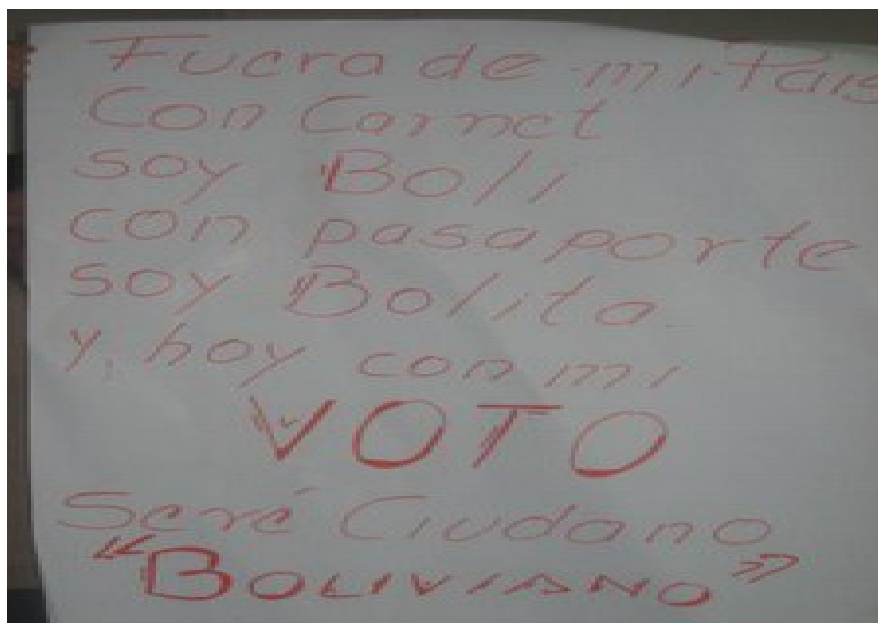 Fuera de mi Pais
Con Carnet
soy Boli
con pasaporte
soy Bolita
y, hoy con mi
VOTO
Seré Ciudano
"BOLIVIANO"